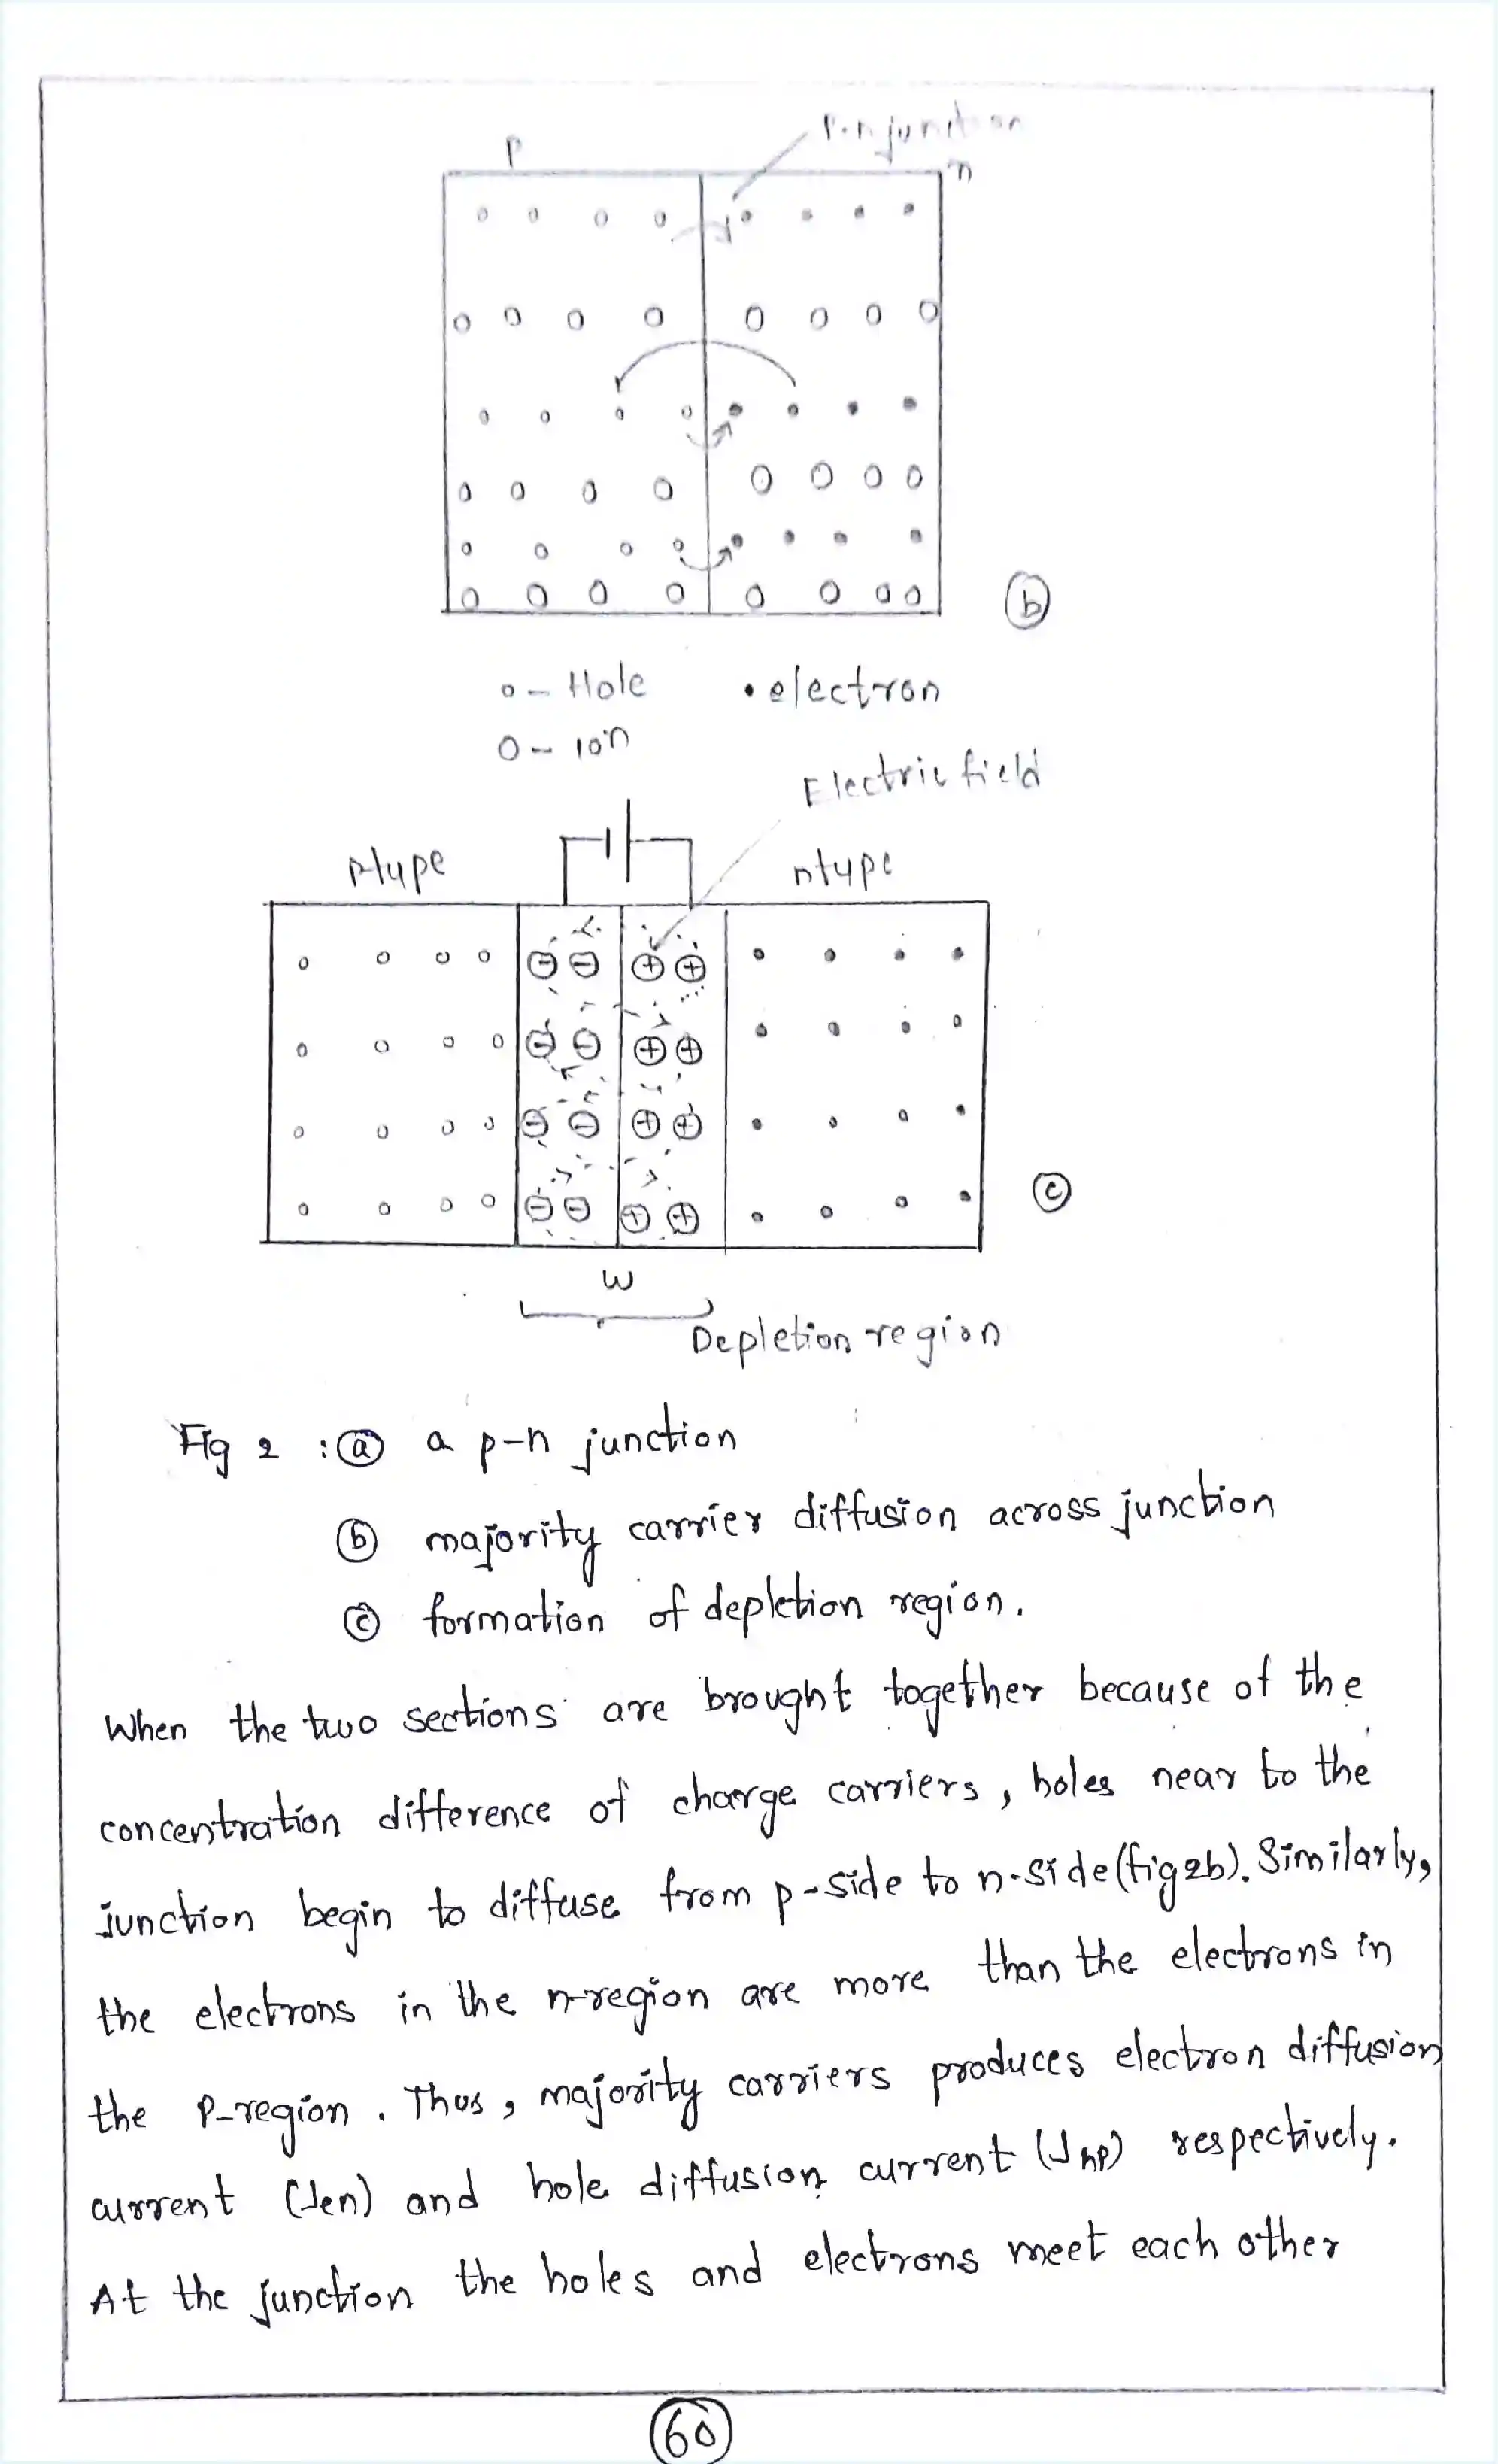 P
P-n junction
n
b
o - Hole
• electron
O - ion
Electric field
Ptype
ntype
c
W
Depletion region
Fig 2 : a a p-n junction
b majority carrier diffusion across junction
c formation of depletion region.
When the two sections are brought together because of the
concentration difference of charge carriers, holes near to the
junction begin to diffuse from p-side to n-side (fig 2b). Similarly,
the electrons in the n-region are more than the electrons in
the P-region. Thus, majority carriers produces electron diffusion
current (Jen) and hole diffusion current (Jhp) respectively.
At the junction the holes and electrons meet each other
60